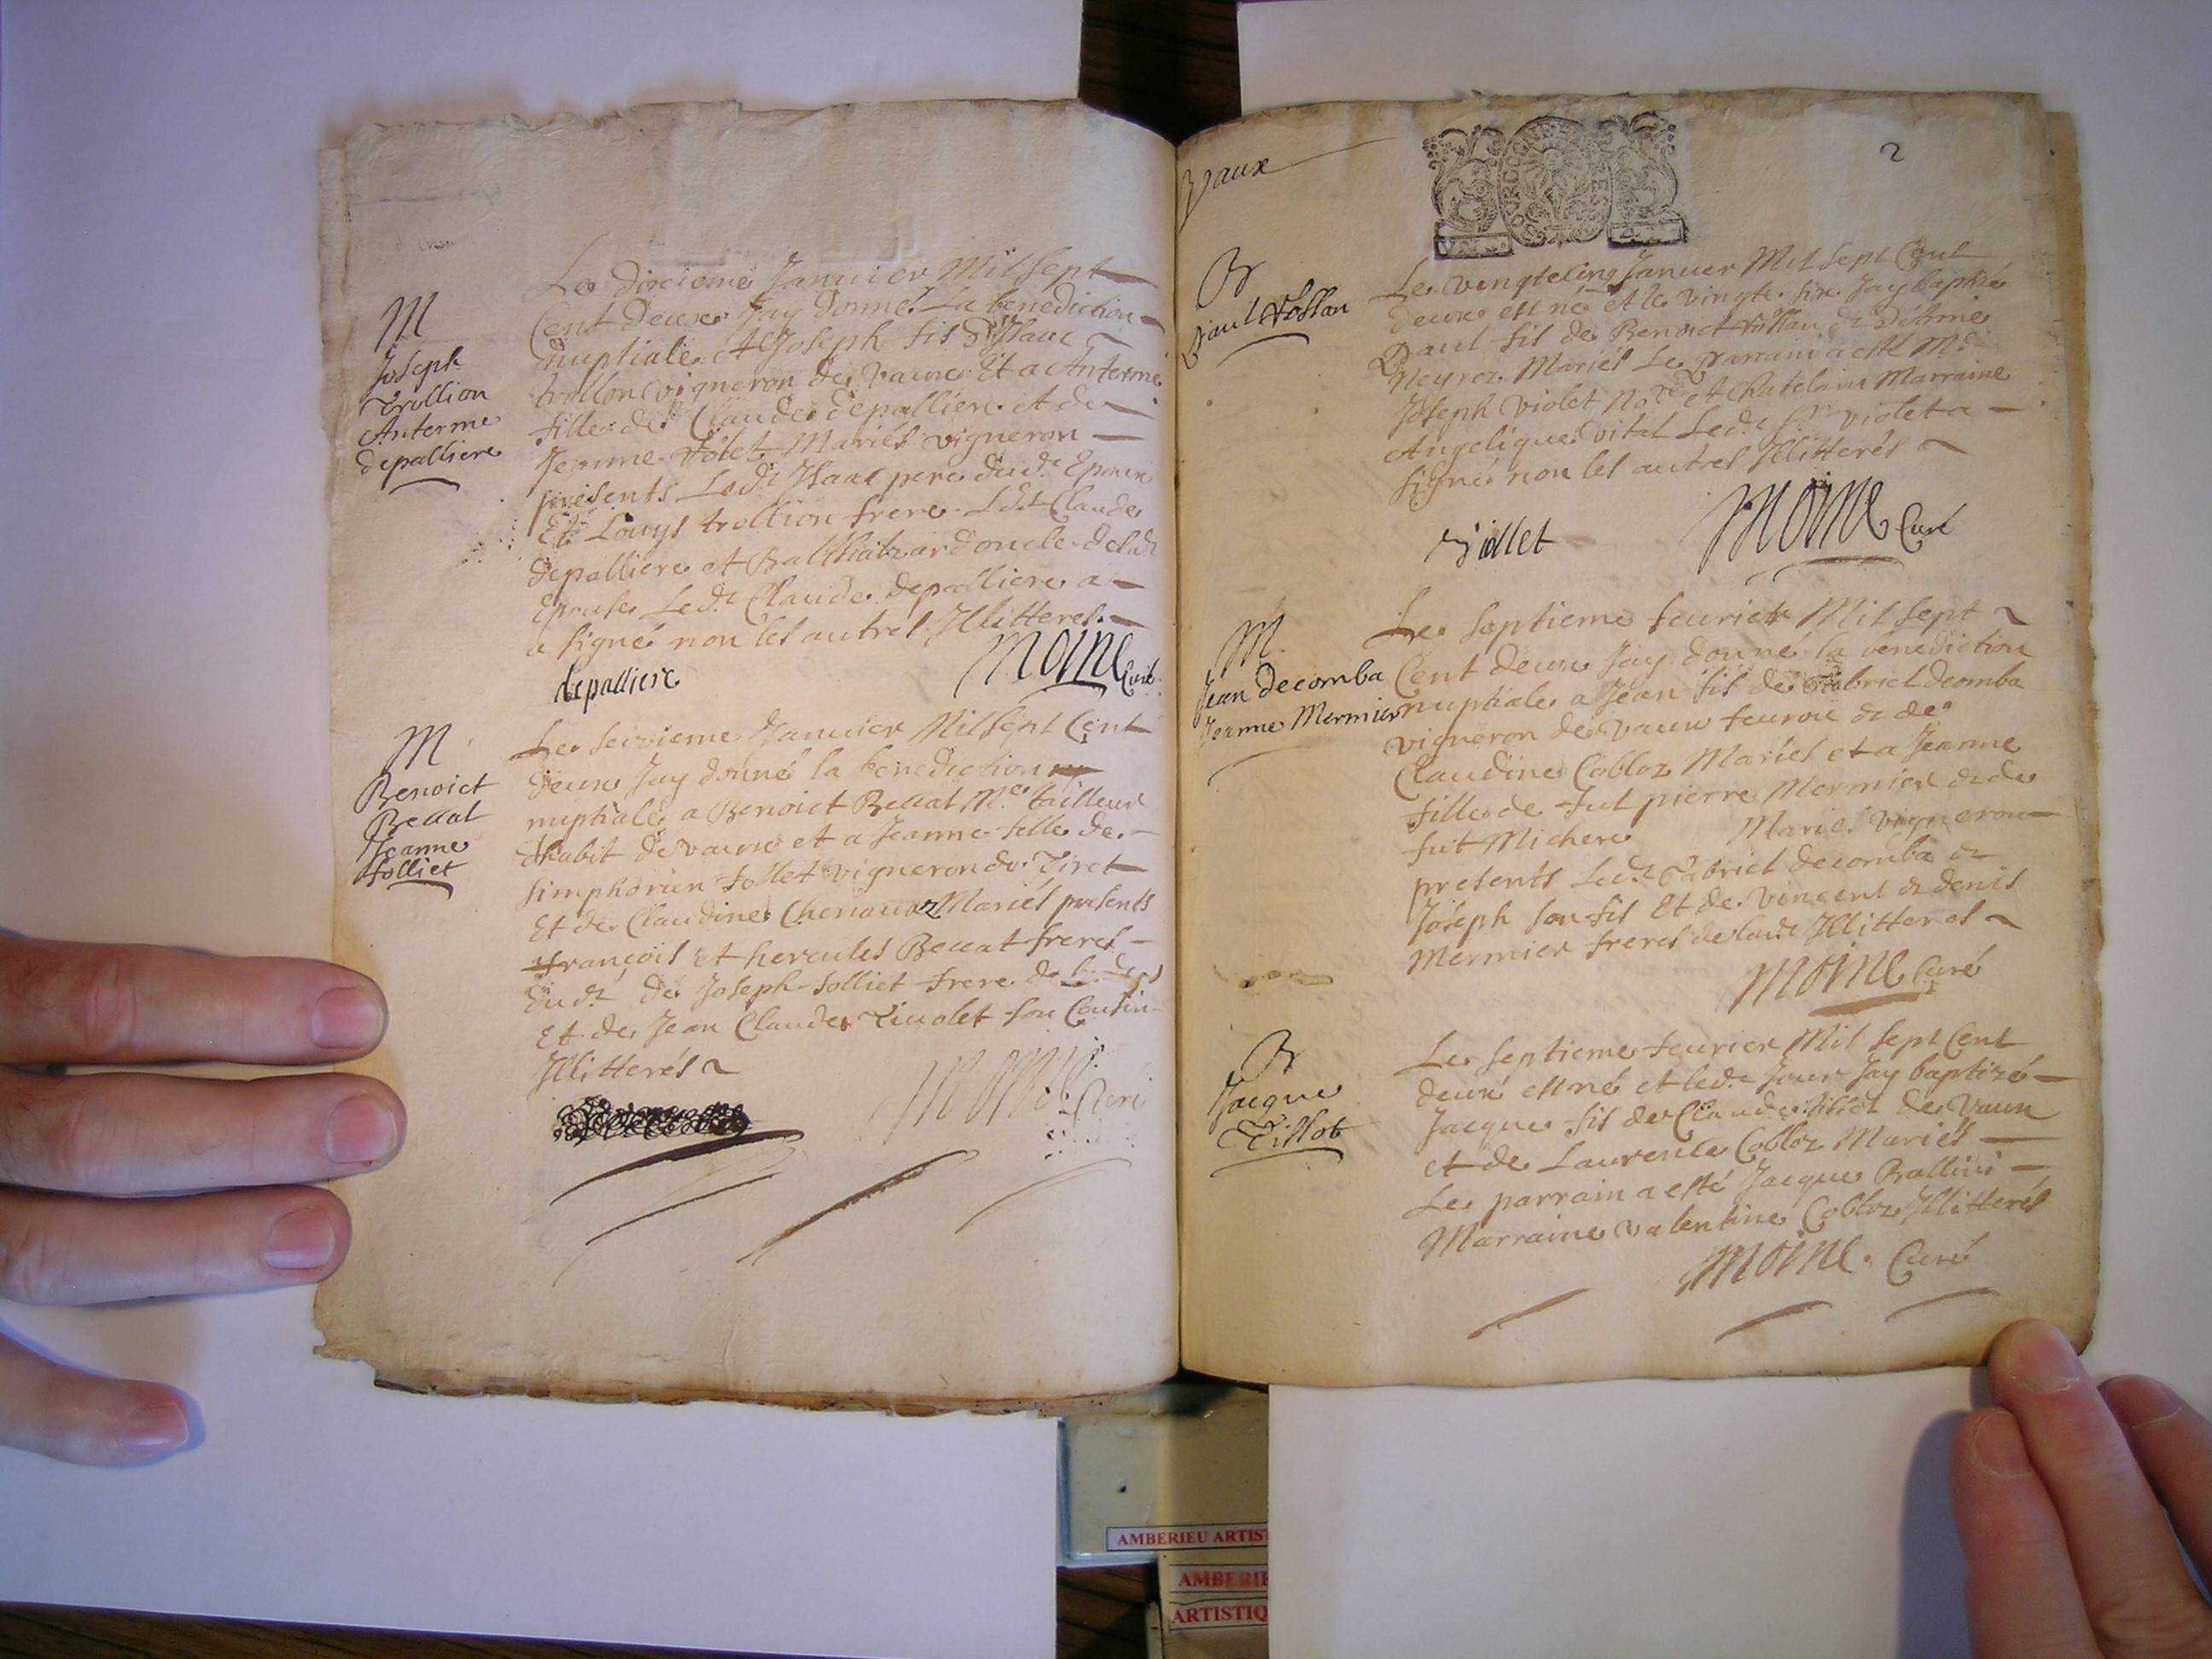 M
Joseph
Trollion
Anterme
depalliere
Le dixieme Januier Mil sept
Cent deux Jay donné La benediction
nuptiale a Joseph fils d'Isaac
trollion vigneron de vaux Et a Anterme
fille de Claude depalliere et de
Jeanne Mariés vigneron
presents Led.t Isaac pere dud.t Epoux
Et Louys trollion frere. Led.t Claude
depalliere et Balthazard oncle de lad.
Epouse Led.t Claude depalliere a
a signé non les autres Illitteres.
depalliere
Moine Curé
M
Benoict
Bellat
Jeanne
folliet
Le seizieme Januier Mil sept Cent
deux Jay donné la benediction
nuptiale a Benoict Bellat M.e tailleur
d'habit de vaux et a Jeanne fille de
simphorien follet vigneron du Tiret
Et de Claudine Mariés presents
françois Et hercules Bellat freres
dud.t de Joseph folliet frere de
Et de Jean Claude son Cousin
Illitterés
Moine Curé
Vaux
2
B
Paul
Le vingtcinq Januier Mil sept Cent
deux est né et le vingt six Jay baptizé
Paul fils de Benoict & d'Etienne
Neyroz Mariés Le parrain a esté M.e
Joseph violet No.re et Chatelain Marraine
Angelique vital Led.t S.r violet a
signé non les autres Illitterés
Viollet
Moine Curé
M
Jean decomba
Jeanne Mermier
Le septieme feurier Mil sept
Cent deux Jay donné la benediction
nuptiale a Jean fils de Gabriel decomba
vigneron de vaux & de
Claudine Cobloz Mariés et a Jeanne
fille de fut pierre Mermier & de
fut Michere Mariés vigneron
presents Led.t Gabriel decomba &
Joseph son fils Et de Vincent & denis
Mermier freres de lad.t Illitteres
Moine Curé
B
Jacque
Tissot
Le septieme feurier Mil sept Cent
deux est né et led.t Jour Jay baptizé
Jacque fils de Claude tissot de Vaux
et de Laurence Cobloz Mariés
Le parrain a esté Jacque Ballivi
Marraine valentine Cobloz Illitterés
Moine Curé
AMBERIEU ARTIST
AMBERIE
ARTISTIQ